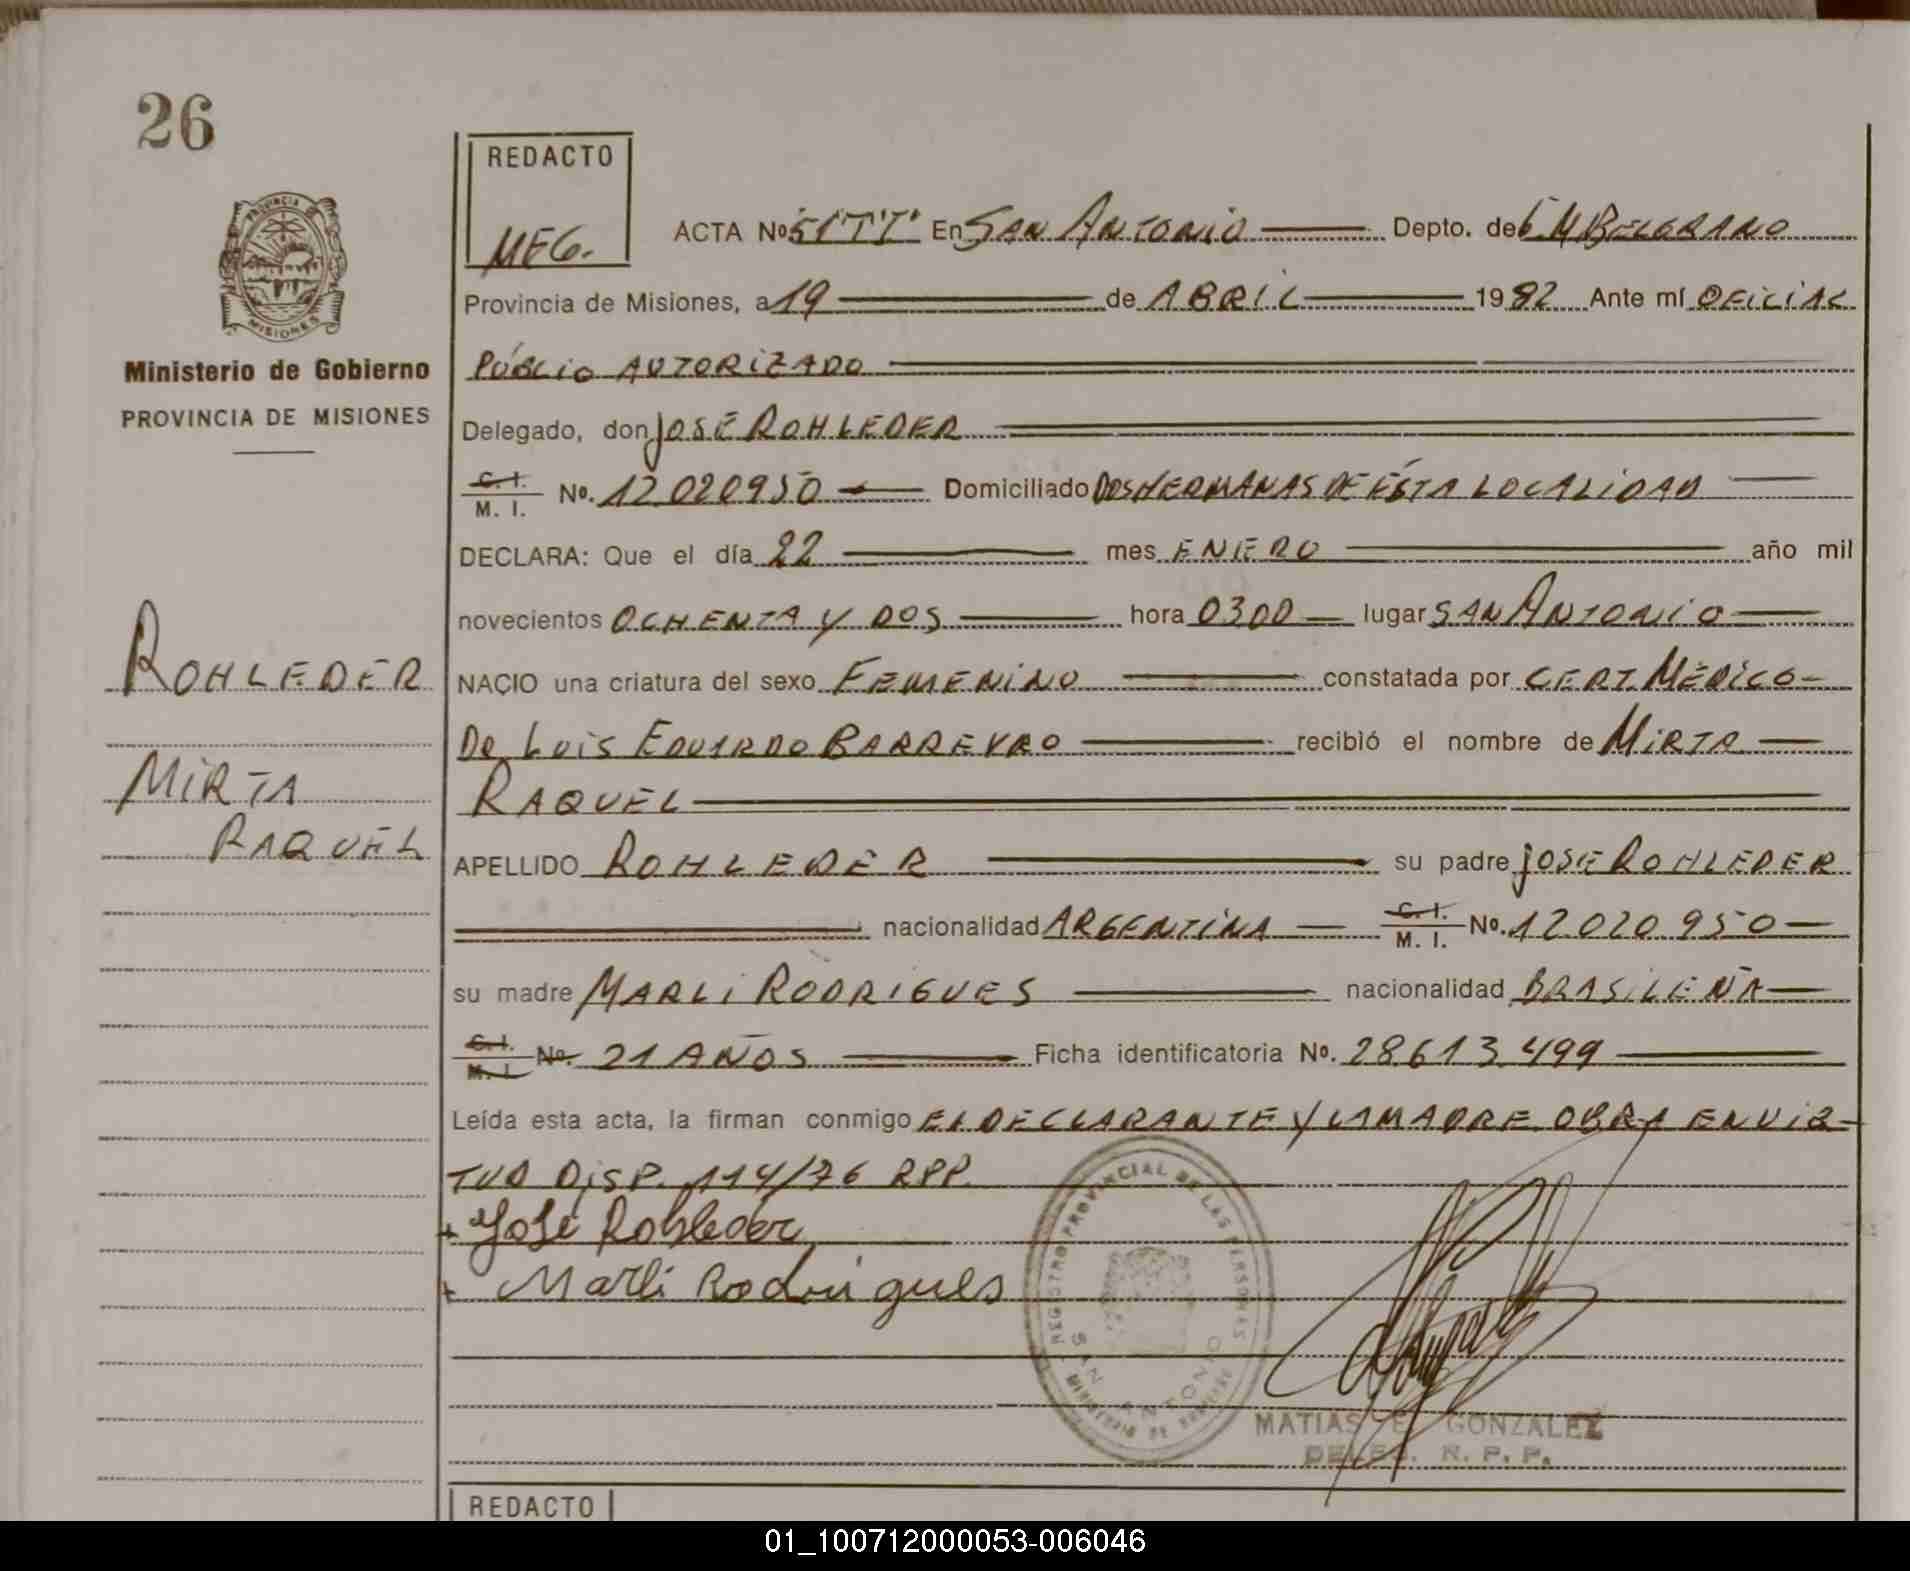 26
REDACTO
MEG.
ACTA Nº 51"T"T" En SAN ANTONIO Depto. de G. M BELGRANO
Provincia de Misiones, a 19 de ABRIL 1982 Ante mí OFICIAL
PÚBLIO AUTORIZADO
Delegado, don JOSÉ ROHLEDER
C. I.
M. I. Nº. 12.020950 Domiciliado DOS HERMANAS DE ÉSTA LOCALIDAD
DECLARA: Que el día 22 mes ENERO año mil
novecientos OCHENTA Y DOS hora 0300 lugar SAN ANTONIO
NACIO una criatura del sexo FEMENINO constatada por CERT. MÉDICO
De LUIS EDUARDO BARREYRO recibió el nombre de MIRTA
RAQUEL
APELLIDO ROHLEDER su padre JOSE ROHLEDER
nacionalidad ARGENTINA C. I.
M. I. Nº. 12.020.950
su madre MARLI RODRIGUES nacionalidad BRASILEÑA
C. I.
M. I. Nº. 21 AÑOS Ficha identificatoria Nº. 28.613.499
Leída esta acta, la firman conmigo El DECLARANTE Y LA MADRE OBRA EN VIR-
TUD DISP. 114/76 RPP.
+ José Rohleder
+ Marli Rodrigues
REGISTRO PROVINCIAL DE LAS PERSONAS
SAN ANTONIO
MINISTERIO DE GOBIERNO
MATIAS E. GONZALEZ
DELEG. R. P. P.
REDACTO
PROVINCIA DE
MISIONES
Ministerio de Gobierno
PROVINCIA DE MISIONES
ROHLEDER
MIRTA
RAQUEL
01_100712000053-006046